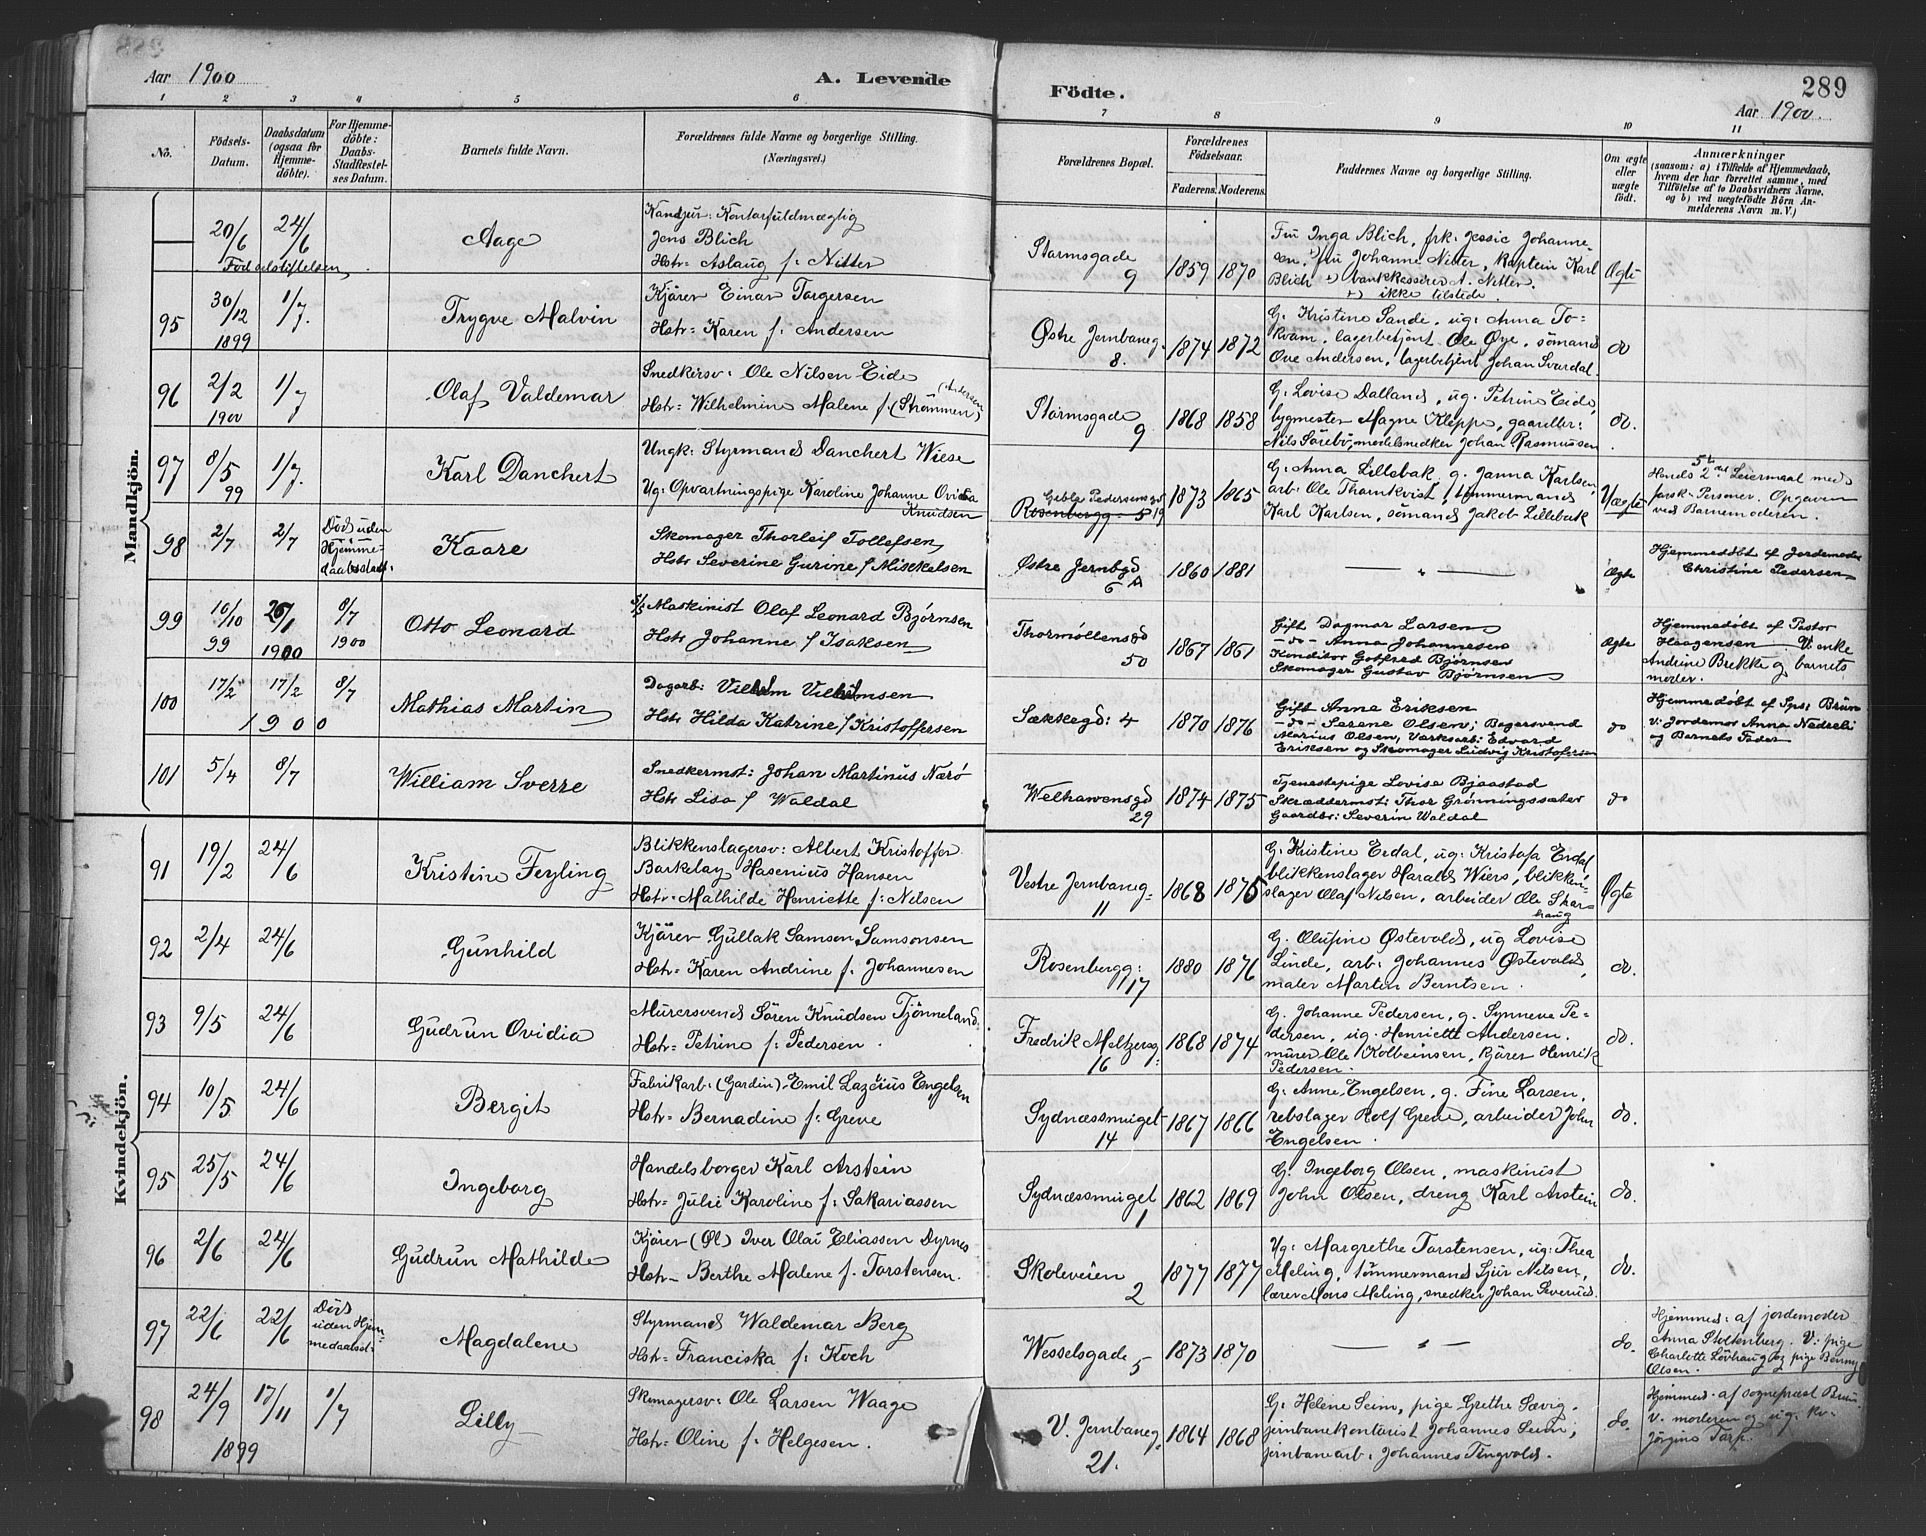 Aar 1900
A. Levende
Födte.
289
Aar 1900
1 2 3 4 5 6 7 8 9 10 11
No.
Födsels-Datum.
Daabsdatum (ogsaa for Hjemme-döbte).
For Hjemme-döbte: Daabs-Stadfæstel-ses Datum.
Barnets fulde Navn.
Forældrenes fulde Navne og borgerlige Stilling.
(Næringsvei.)
Forældrenes Bopæl.
Forældrenes Födselsaar.
Faderens. Moderens.
Faddernes Navne og borgerlige Stilling.
Om ægte eller uægte födt.
Anmærkninger
(saasom: a) i Tilfælde af Hjemmedaab,
hvem der har forrettet samme, med
Tilföielse af to Daabsvidners Navne,
og b) ved uægtefödte Börn An-
melderens Navn m. V.)
Mandkjön.
20/6 24/6 Aage
Födselsstiftelsen
Kandjur: Kontorfuldmægtig
Jens Blich
Hstr: Aslaug f: Nitter
Stormsgade 9
1859 1870
Fru Inga Blich, frk: Jessie Johanne-
sen, fru Johanne Nitter, kaptein Karl
Blich +) bankkasserer A. Nitter.
+) ikke tilstede.
Ægte
95 30/12 1899 1/7. Trygve Malvin
Kjörer Einar Torgersen
Hstr: Karen f: Andersen
Østre Jernbaneg. 8.
1874 1872
G: Kristine Sande, ug: Anna To-
kvam, lagerbetjent Ole Øye, sömand
Ove Andersen, lagerbetjent Johan Svardal.
do
96 2/2 1900 1/7 Olaf Valdemar
Snedkersv: Ole Nilsen Eide
Hstr: Wilhelmine Malene f: (Andersen) (Strömmen)
Stormsgade 9
1868 1858
G: Lovise Dalland, ug: Petrine Eide,
bygmester Magne Kleppe, gaardeier:
Nils Sörebö, modelsnedker Johan Rasmussen
do.
97 8/5 99 1/7. Karl Danchert
Ungk: Styrmand Danchert Wiese
Ug: Opvartningspige Karoline Johanne Ovidia
Knudsen
Geble Pedersensgd 19
Rosenbergg: 5
1873 1865
G: Anna Lillebak, g. Janna Karlsen,
arb: Ole Thornkvist, tömmermand
Karl Karlsen, sömand Jakob Lillebak
Uægte
Hendes 5te 2det Leiermaal med
forsk. Personer. Opgaven
ved Barnemoderen.
98 2/7 2/7 Död uden Hjemme-daabsstadf: Kaare
Skomager Thorleif Tollefsen
Hstr Severine Gurine f Mikkelsen
Østre Jernbgd 6 A
1860 1881
— " —
Ægte
Hjemmedöbt af Jordemoder
Christine Pedersen
99 10/10 99 26/1 1900 8/7 1900 Otto Leonard
S/S Maskinist Olaf Leonard Bjørnsen
Hstr Johanne f Isaksen
Thormøllensgd 50
1867 1861
Gift Dagmar Larsen
-do- Anna Johannesen
Konditor Gotfred Bjørnsen
Skomager Gustav Bjørnsen
Ægte
Hjemmedöbt af Pastor
Haagensen. V: enke
Andrine Brekke og barnets
moder.
100 17/2 17/2 8/7 1900 Mathias Martin
Dagarb: Vilhelm Vilhelmsen
Hstr Hilda Katrine f Kristoffersen
Sækkegd: 4
1870 1876
Gift Anna Eriksen
-do- Serene Olsen, Bagersvend
Marius Olsen, Værksarb: Edvard
Eriksen og Skomager Ludvig Kristofersen
do
Hjemmedöbt af Sps: Bruun
V: Jordemor Anna Nedrebö
og Barnets Fader
101 5/4 8/7 William Sverre
Snedkermst: Johan Martinus Nærö
Hstr Lisa f Waldal
Welhavensgd 29
1874 1875
Tjenestepige Lovise Bjaastad
Skræddermst: Thor Grönningssæter
Gaardbr: Severin Waldal
do
Kvindekjön.
91 19/2 24/6 Kristine Feyling
Blikkenslagersv: Albert Kristoffer
Barkelay Hasenius Hansen
Hstr: Mathilde Henriette f: Nilsen
Vestre Jernbaneg: 11
1868 1875
G: Kristine Erdal, ug: Kristofa Erdal
blikkenslager Harald Wiers, blikken-
slager Olaf Nilsen, arbeider Ole Skar-
haug
Ægte
92 2/4 24/6 Gunhild
Kjörer Gullak Samson Samsonsen
Hstr: Karen Andrine f: Johannesen
Rosenbergg: 17
1880 1876
G: Olufine Østevold, ug Lovise
Linde, arb: Johannes Østevold,
maler Morten Berntsen.
do.
93 9/5 24/6 Gudrun Ovidia
Murersvend Sören Knudsen Tjönneland.
Hstr: Petrine f: Pedersen.
Fredrik Meltzersg: 16
1868 1874
G: Johanne Pedersen, g. Synneve Pe-
dersen, ug: Henriette Andersen.
murer Ole Kolbeinsen, kjörer Henrik
Pedersen.
do.
94 10/5 24/6 Bergit
Fabrikarb: (Gardin) Emil Lazcius Engelsen
Hstr: Bernadine f: Greve
Sydnæssmuget 14
1867 1866
G: Anne Engelsen, g. Fine Larsen,
rebslager Rolf Greve, arbeider John
Engelsen.
do.
95 25/5 24/6 Ingeborg
Handelsborger Karl Arstein
Hstr: Julie Karoline f: Sakariassen
Sydnæssmuget 1
1862 1869
G: Ingeborg Olsen, maskinist
John Olsen, dreng Karl Arstein
do.
96 2/6 24/6 Gudrun Mathilde
Kjörer (Øl) Iver Olai Eliassen Dyrnes
Hstr: Berthe Malene f. Torstensen.
Skoleveien 2
1877 1877
Ug: Margrethe Torstensen, ug: Thea
Meling, tömmermand Sjur Nilsen,
lærer Mons Meling, snedker Johan Severud.
do.
97 22/6 22/6 Död uden Hjem-medaabsst: Magdalene
Styrmand Waldemar Berg
Hstr: Franciska f: Koch
Wesselsgade 5
1873 1870
— " —
do.
Hjemmed: af jordemoder
Anna Stoltenberg. V: pige
Charlotte Lövhaug og pige Benny
Olsen.
98 24/9 17/11 1899 1/7 Lilly
Skomagersv: Ole Larsen Waage
Hstr: Oline f: Helgesen.
V. Jernbaneg. 21.
1864 1868
G: Helene Seim, pige Grethe Sævig.
jernbanekontorist Johannes Seim;
jernbanearb: Johannes Tingvold.
do.
Hjemmed: af sognepræst Bruun
V. moderen og ug. kv.
Jörgine Torp.